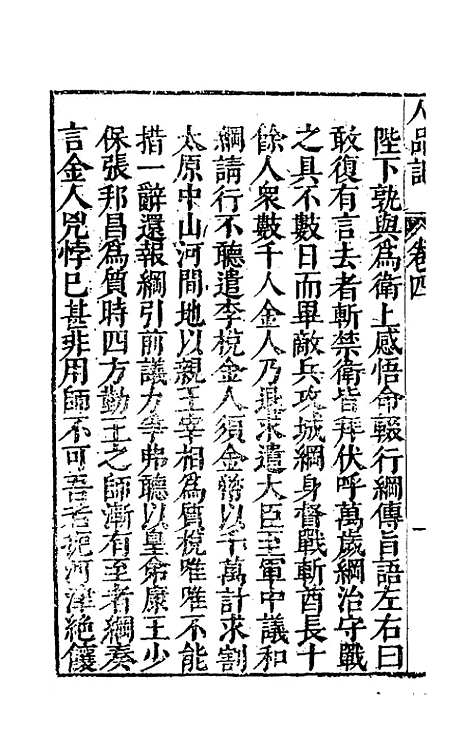 人品記 卷四
陛下孰與為衛上感悟命輟行綱傳旨語左右曰
敢復有言去者斬禁衛皆拜伏呼萬歲綱治守戰
之具不數日而畢敵兵攻城綱身督戰斬酋長十
餘人衆數千人金人乃退求遣大臣至軍中議和
綱請行不聽遣李梲金人須金幣以千萬計求割
太原中山河間地以親王宰相為質梲唯唯不能
措一辭還報綱引前議力爭弗聽以皇弟康王少
保張邦昌為質時四方勤王之師漸有至者綱奏
言金人兇悖已甚非用師不可吾若扼河津絶餉